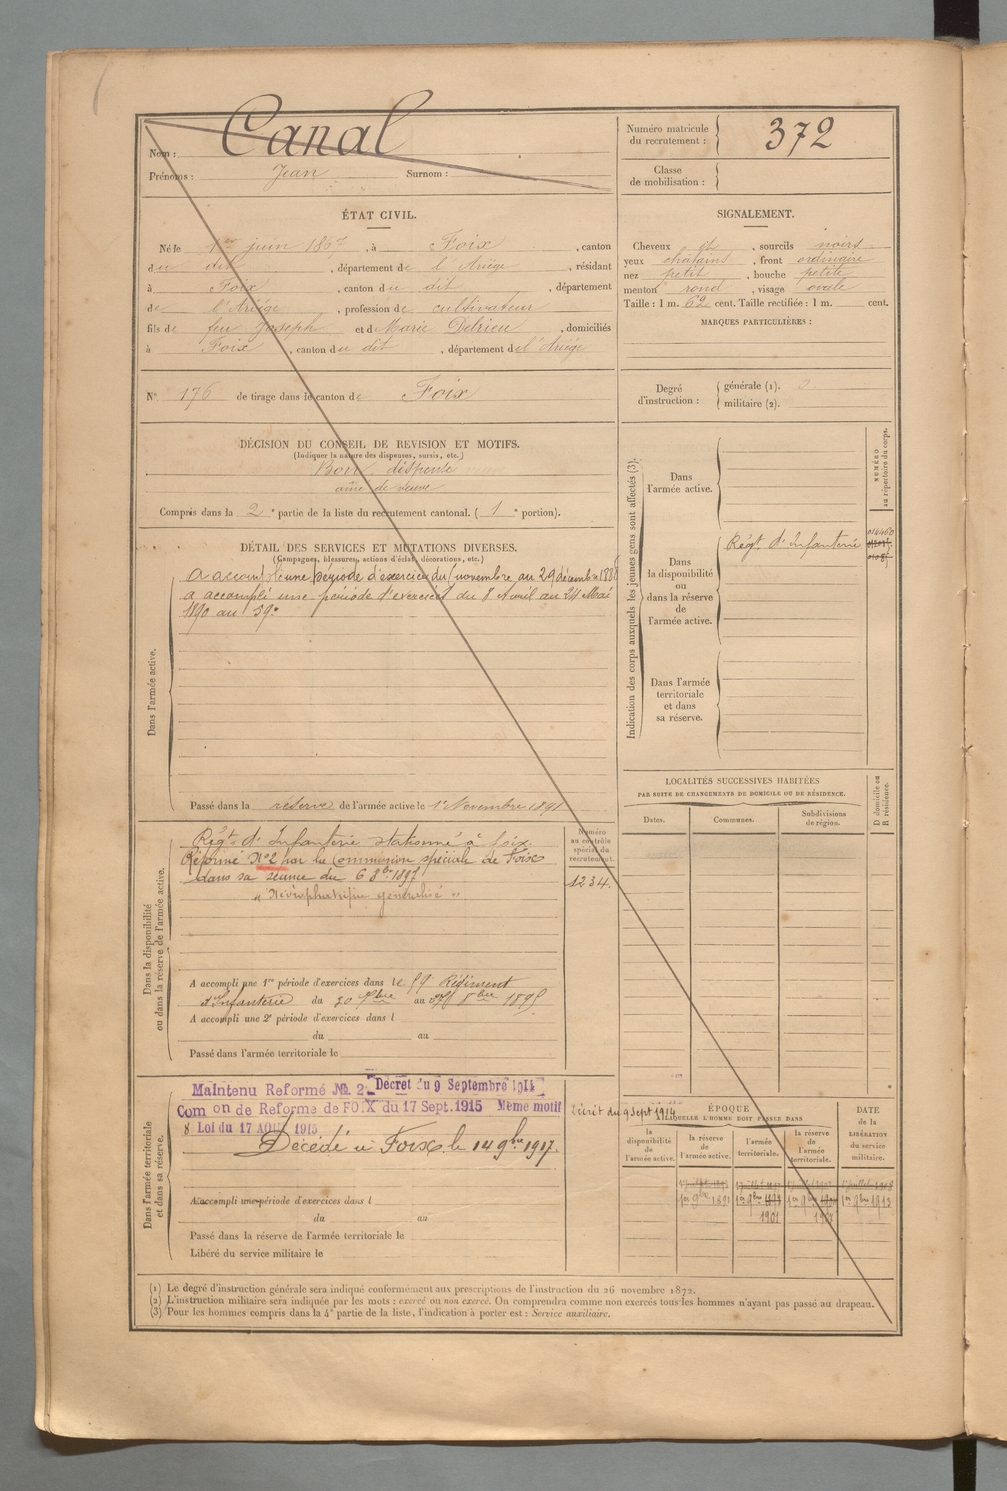 Nom : Canal
Prénoms : Jean Surnom :
Numéro matricule du recrutement : 372
Classe de mobilisation :
ÉTAT CIVIL.
Né le 1er juin 1867, à Foix, canton
du dit, département de l'Ariège, résidant
à Foix, canton du dit, département
de l'Ariège, profession de cultivateur
fils de feu Joseph et de Marie Delrieu, domiciliés
à Foix, canton du dit, département de l'Ariège
SIGNALEMENT.
Cheveux , sourcils noirs
yeux chatains, front ordinaire
nez petit, bouche petite
menton rond, visage ovale
Taille : 1 m. 62 cent. Taille rectifiée : 1 m. cent.
MARQUES PARTICULIÈRES :
N° 176 de tirage dans le canton de Foix
Degré d'instruction : générale (1). 0.
militaire (2).
DÉCISION DU CONSEIL DE REVISION ET MOTIFS.
(Indiquer la nature des dispenses, sursis, etc.)
Bon dispensé
aîné de veuve
Compris dans la 2e partie de la liste du recrutement cantonal. (1e portion).
DÉTAIL DES SERVICES ET MUTATIONS DIVERSES.
(Campagnes, blessures, actions d'éclat, décorations, etc.)
Dans l'armée active.
A accompli une période d'exercice du novembre au 29 décembre 1888
a accompli une période d'exercice du 8 Avril au 24 Mai
1890 au 59e
Passé dans la réserve de l'armée active le 1er Novembre 1891
Indication des corps auxquels les jeunes gens sont affectés (3).
NUMÉRO au répertoire du corps.
Dans l'armée active.
Dans la disponibilité ou dans la réserve de l'armée active.
Régt d'Infanterie
Dans l'armée territoriale et dans sa réserve.
LOCALITÉS SUCCESSIVES HABITÉES
PAR SUITE DE CHANGEMENTS DE DOMICILE OU DE RÉSIDENCE.
Dates. Communes. Subdivisions de région. D domicile ou R résidence.
Dans la disponibilité ou dans la réserve de l'armée active.
Régt d'Infanterie stationné à Foix.
Réformé N°2 par la Commission spéciale de Foix
dans sa séance du 6 8bre 1897
généralisé
Numéro au contrôle spécial du recrutement.
1234.
A accompli une 1re période d'exercices dans le 59 Régiment
d'Infanterie du au 8bre
A accompli une 2e période d'exercices dans l
du au
Passé dans l'armée territoriale le
Dans l'armée territoriale et dans sa réserve.
Maintenu Reformé № 2 Décret du 9 Septembre 1914
Com on de Reforme de FOIX du 17 Sept. 1915 Même motif
8 Loi du 17 AOUT 1915
Décédé à Foix le 14 9bre 1917.
A accompli une période d'exercices dans l
du au
Passé dans la réserve de l'armée territoriale le
Libéré du service militaire le
Décret du 9 Sept 1914
ÉPOQUE
A LAQUELLE L'HOMME DOIT PASSER DANS
la disponibilité de l'armée active. la réserve de l'armée active. l'armée territoriale. la réserve de l'armée territoriale.
DATE de la LIBÉRATION du service militaire.
1er 9bre 1891 1er 9bre 1901 1er 9bre 1907 1er 9bre 1913
(1) Le degré d'instruction générale sera indiqué conformément aux prescriptions de l'instruction du 26 novembre 1872.
(2) L'instruction militaire sera indiquée par les mots : exercé ou non exercé. On comprendra comme non exercés tous les hommes n'ayant pas passé au drapeau.
(3) Pour les hommes compris dans la 4e partie de la liste, l'indication à porter est : Service auxiliaire.